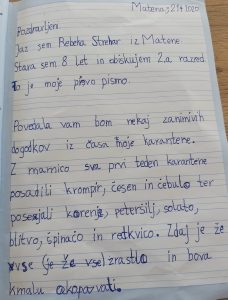 Matena, 21.4.2020
Pozdravljeni
Jaz sem Rebeka Strehar iz Matene.
Stara sem 8 let in obiskujem 2.a razred
To je moje prvo pismo.
Povedala vam bom nekaj zanimivih
dogodkov iz časa moje karantene.
Z mamico sva prvi teden karantene
posadili krompir, česen in čebulo ter
posejali korenje, peteršilj, solato,
blitvo, špinačo in redkvico. Zdaj je že
vse (je že vse) zrastlo in bova
kmalu okopavati.